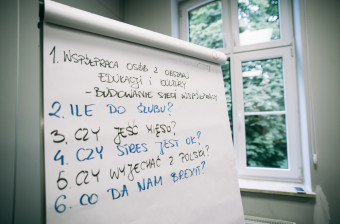 1. WSPÓŁPRACA OSÓB Z OBSZARU
EDUKACJI I KULTURY
- BUDOWANIE SIECI WSPÓŁPRACY
2. ILE DO ŚLUBU?
3. CZY JEŚĆ MIĘSO?
4. CZY STRES JEST OK?
5. CZY WYJECHAĆ Z POLSKI?
6. CO DA NAM BREXIT?